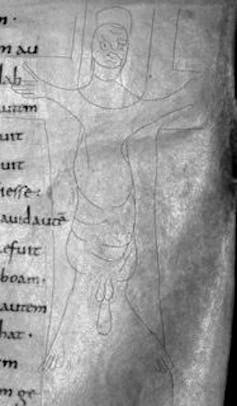 m ·
m au
lab
autem
uit
uit
iesse :
auidautē
efuit
boam ·
autem
hat ·
m
m ge